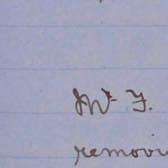 Mr. F.
removi